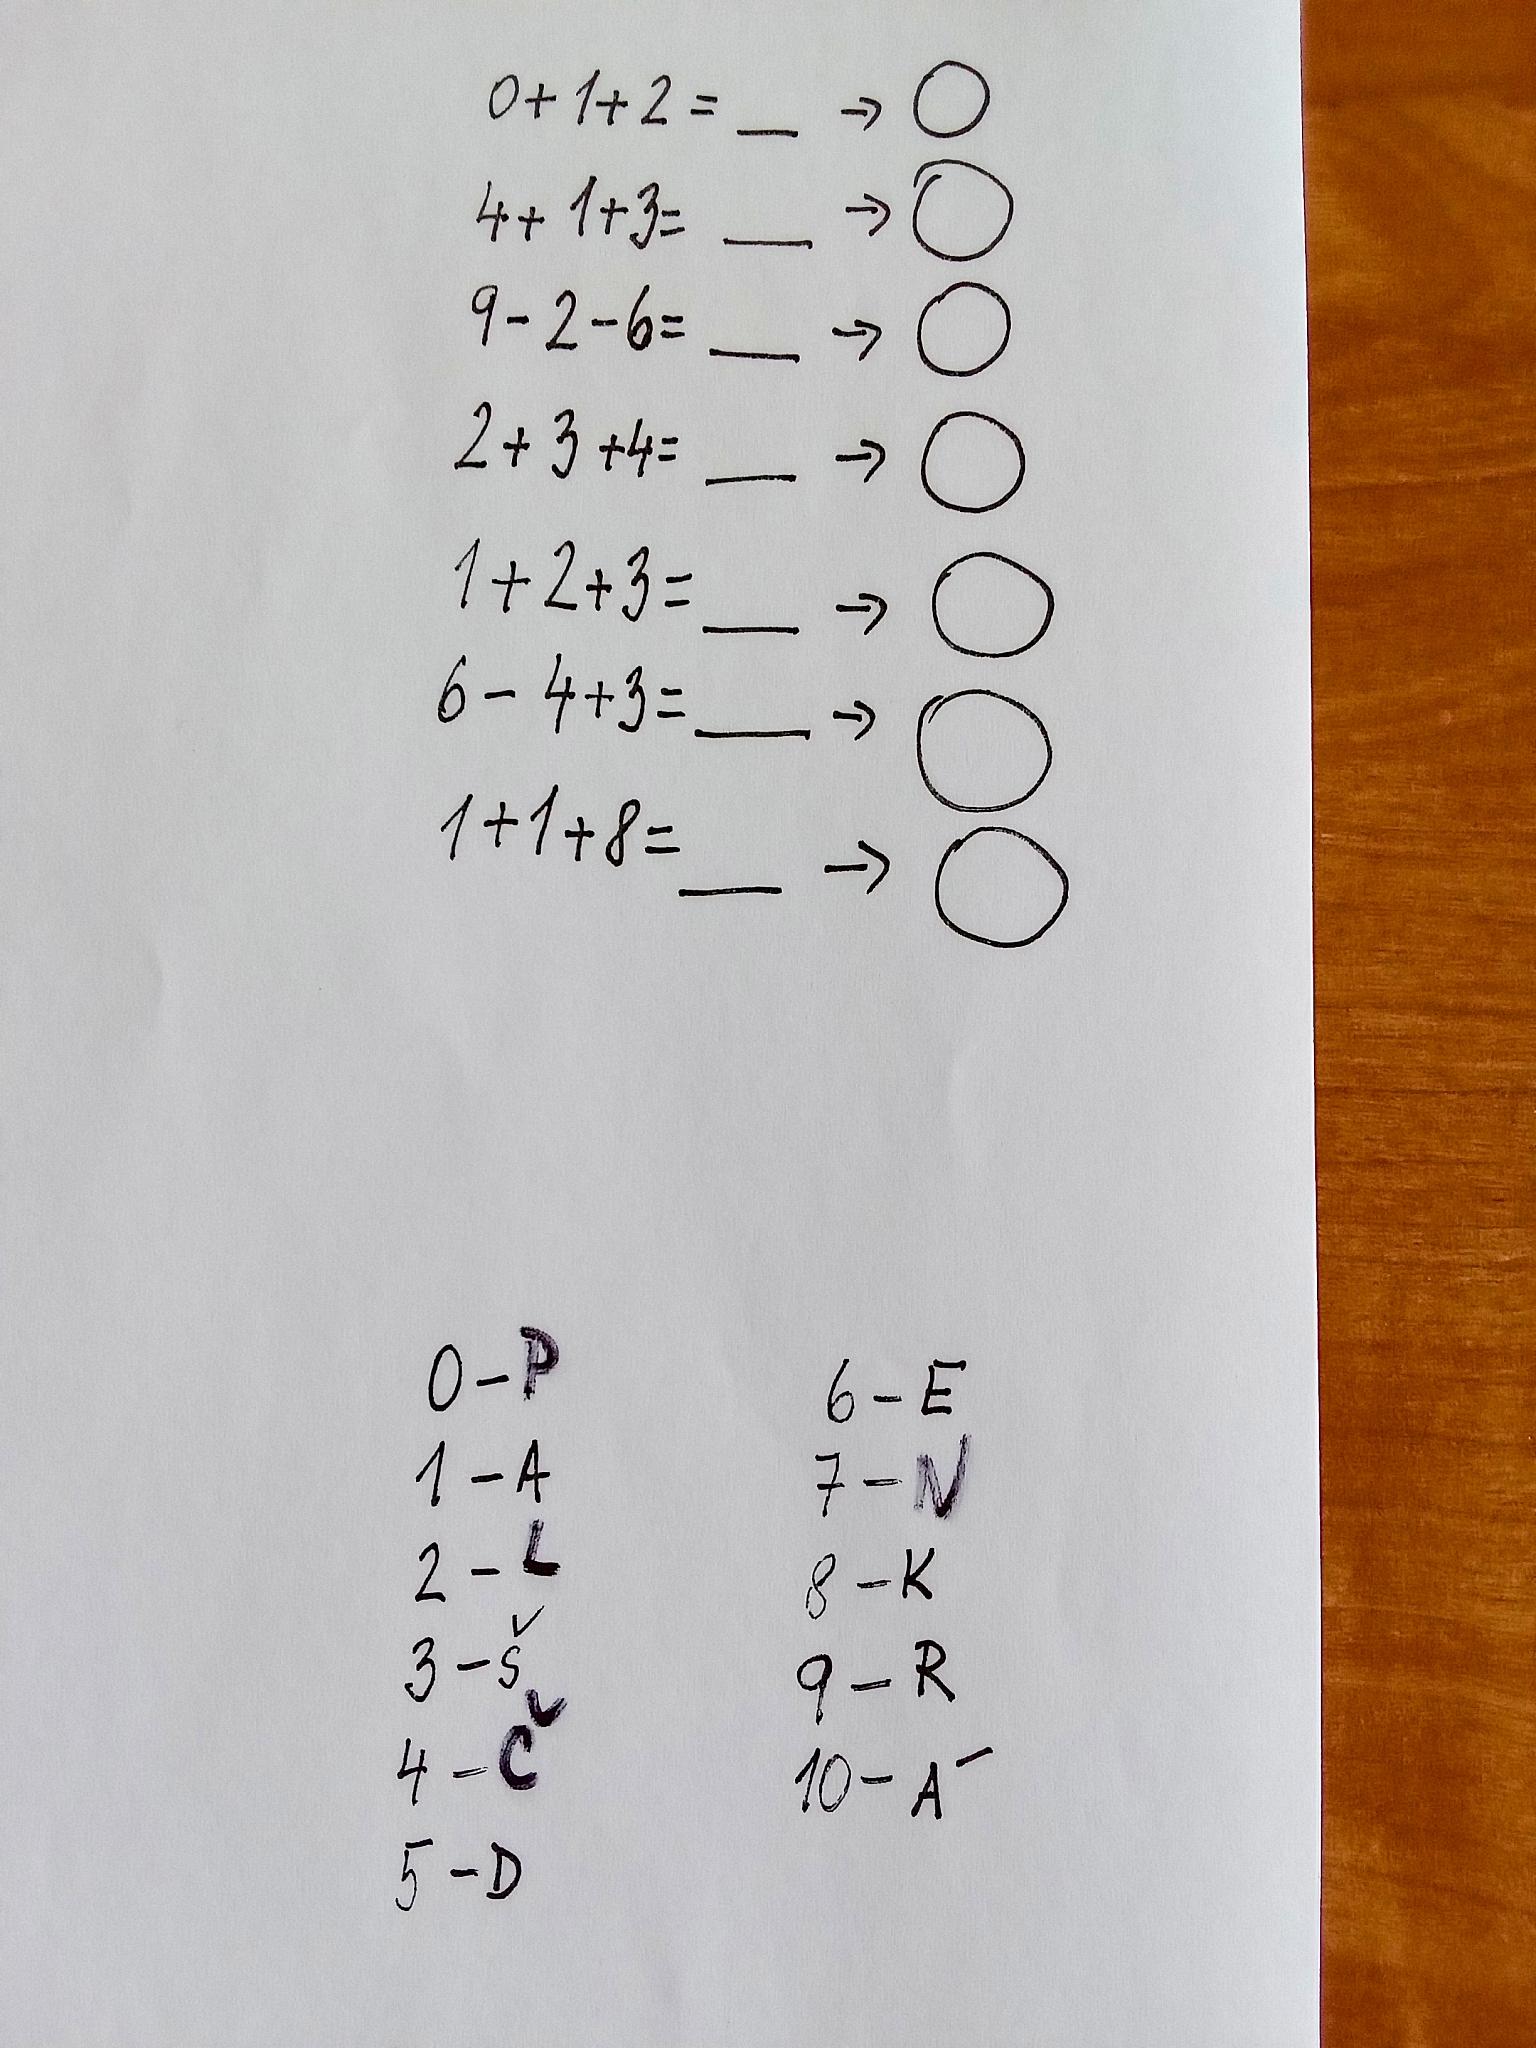 0+1+2=__ → ○
4+1+3= __ → ○
9-2-6= __ → ○
2+3+4= __ → ○
1+2+3=__ → ○
6-4+3=__ → ○
1+1+8=__ → ○
0-P
1-A
2-L
3-Š
4-Č
5-D
6-E
7-N
8-K
9-R
10-Á